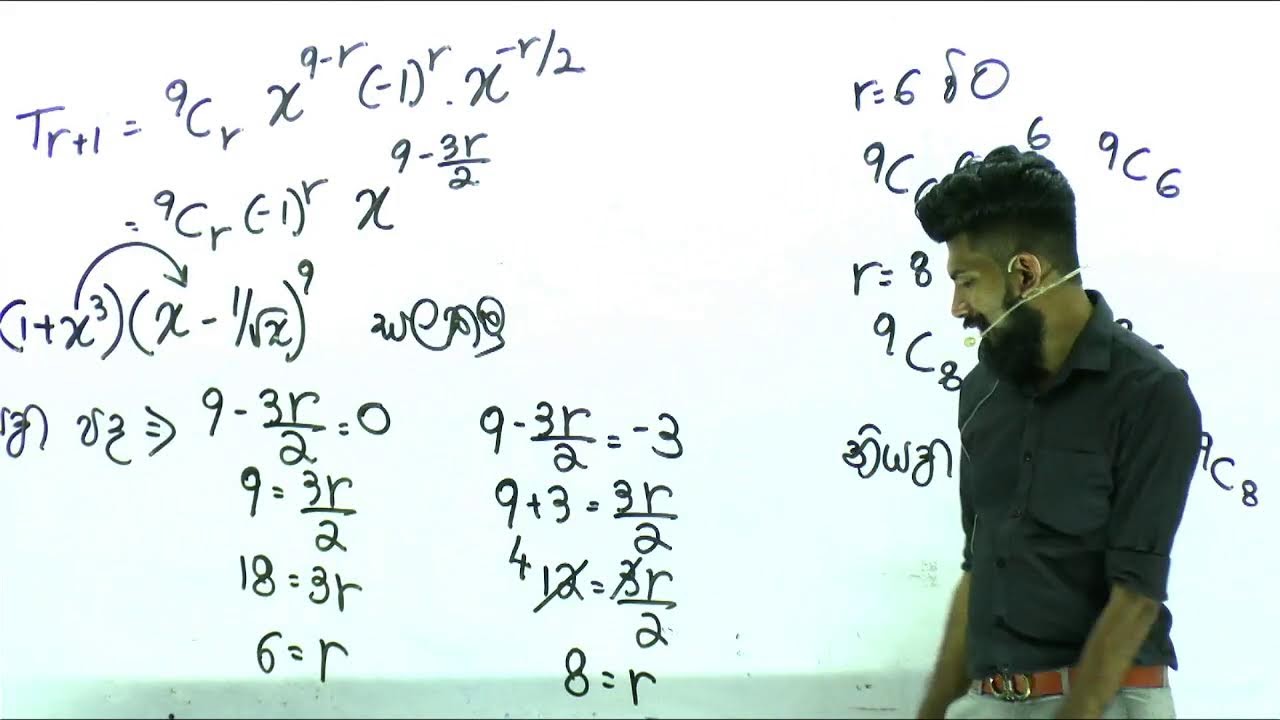 Tr+1 = ⁹Cᵣ x^(9-r) (-1)^r . x^(-r/2)
= ⁹Cᵣ (-1)^r x^(9 - 3r/2)
(1+x³)(x - 1/√x)⁹ සලකමු
පද ⇒ 9 - 3r/2 = 0
9 = 3r/2
18 = 3r
6 = r
9 - 3r/2 = -3
9+3 = 3r/2
4 12 = 3r/2
8 = r
r=6 විට
6 ⁹C₆
r= 8
⁹C₈
නියත
⁹C₈